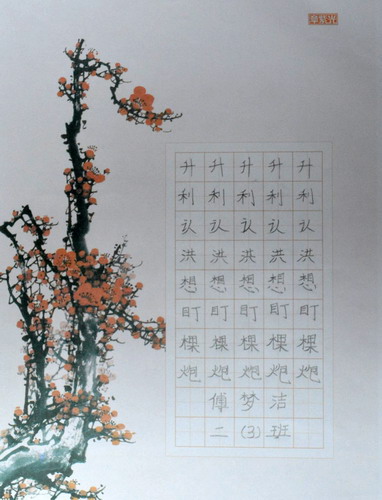 升升升升升
利利利利利
认认认认认
洪洪洪洪洪
想想想想想
盯盯盯盯盯
棵棵棵棵棵
炮炮炮炮炮
傅梦洁
二(3)班